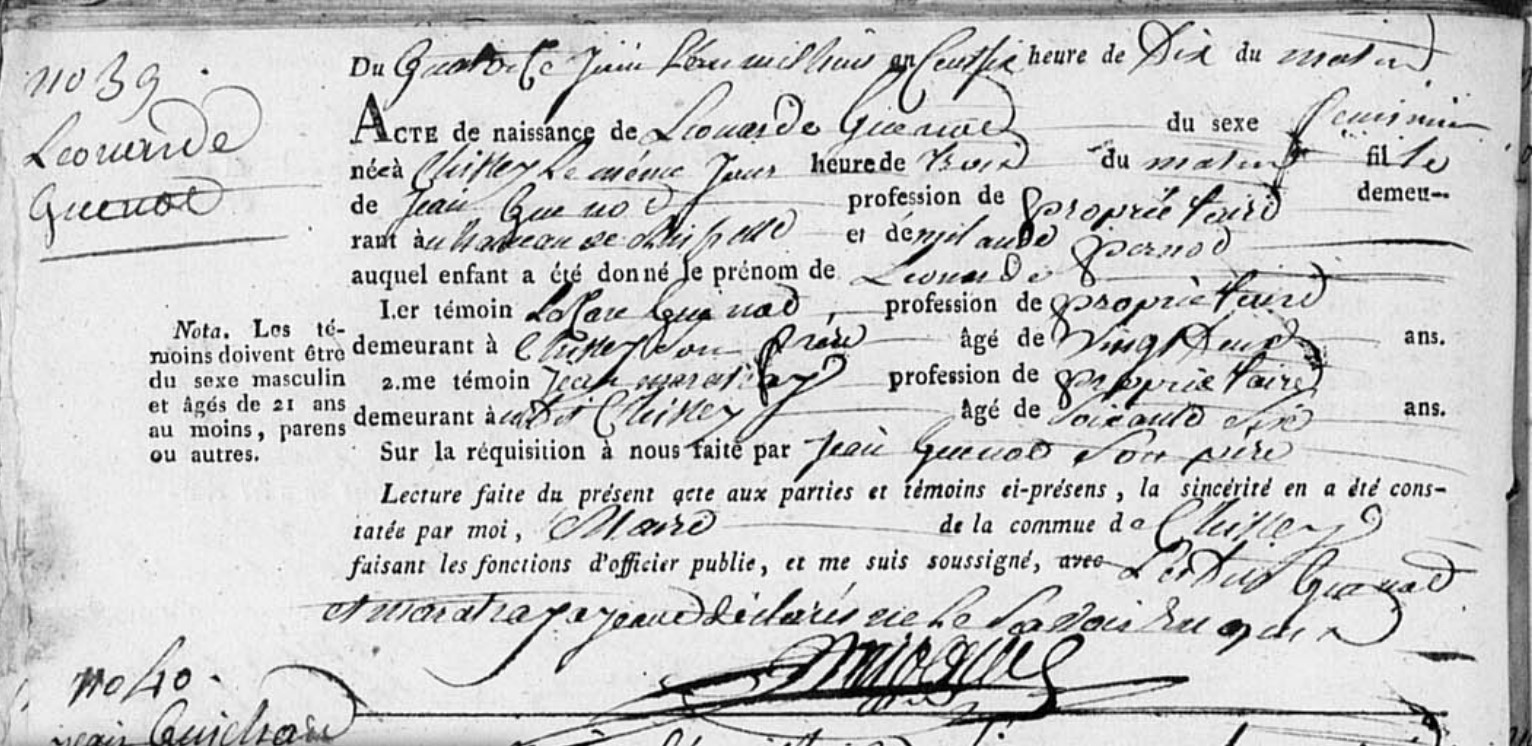 no 39
Leonarde
Guenot
Du Quatorze Juin l'an mil huit cent six heure de Dix du matin
ACTE de naissance de Leonarde Guenot du sexe feminin
née à Chissey le même Jour heure de trois du matin fille
de Jean Guenot profession de propriétaire demeu-
rant à au hameau de et de milande pernot
auquel enfant a été donné le prénom de Leonarde
I.er témoin Lazare Guenot, profession de propriètaire
demeurant à Chissey son frère âgé de Vingt Deux ans.
2.me témoin Jean maratray profession de propriétaire
demeurant à Chissey âgé de Soixante Six ans.
Sur la réquisition à nous faite par Jean Guenot Son père
Lecture faite du présent acte aux parties et témoins ci-présens, la sincérité en a été cons-
tatée par moi, Maire de la commue de Chissey
faisant les fonctions d'officier publie, et me suis soussigné, avec Guenot
et maratray ayant déclarés ne le savoir
Nota. Les té-
moins doivent être
du sexe masculin
et âgés de 21 ans
au moins, parens
ou autres.
no 40.